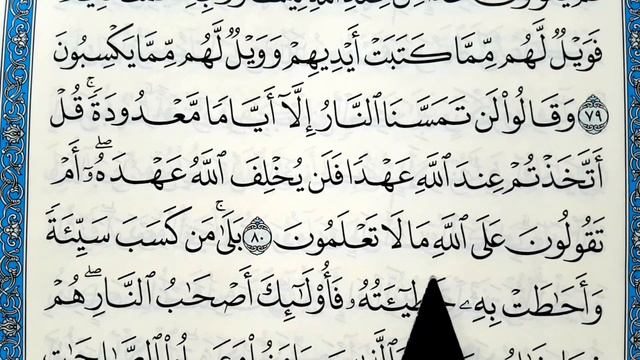 فَوَيْلٌ لَّهُم مِّمَّا كَتَبَتْ أَيْدِيهِمْ وَوَيْلٌ لَّهُم مِّمَّا يَكْسِبُونَ
٧٩ وَقَالُوا۟ لَن تَمَسَّنَا ٱلنَّارُ إِلَّآ أَيَّامًا مَّعْدُودَةً ۚ قُلْ
أَتَّخَذْتُمْ عِندَ ٱللَّهِ عَهْدًا فَلَن يُخْلِفَ ٱللَّهُ عَهْدَهُۥٓ ۖ أَمْ
تَقُولُونَ عَلَى ٱللَّهِ مَا لَا تَعْلَمُونَ ٨٠ بَلَىٰ ۚ مَن كَسَبَ سَيِّئَةً
وَأَحَٰطَتْ بِهِۦ خَطِيٓـَٔتُهُۥ فَأُو۟لَٰٓئِكَ أَصْحَٰبُ ٱلنَّارِ ۖ هُمْ